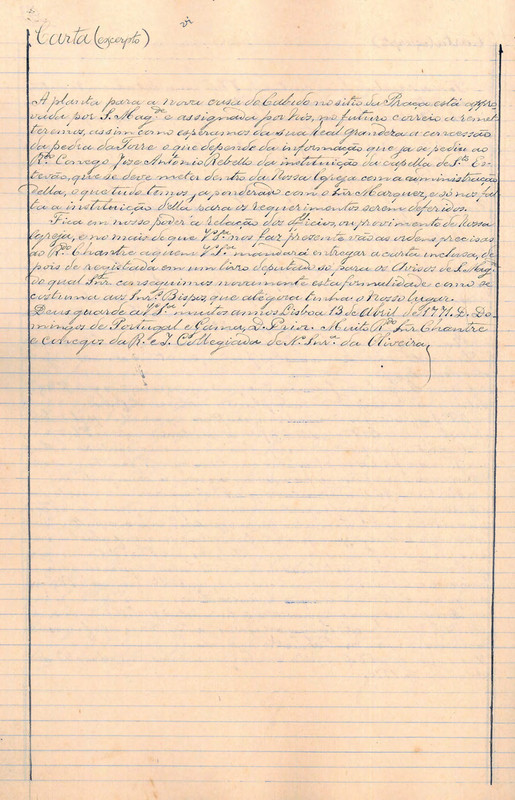 vi
Carta (excerpto)
A planta para a nova casa do Cabido no sitio da Praça está appro
vada por S. Mag.de e assignada por nós, no futuro correio a remet
teremos, assim como esperamos da sua Real Grandeza a concessão
da pedra da Torre o que depende da informação que ja se pediu ao
R.do Conego Joze Antonio Rebello da instituição da capella de S.to Es
tevão, que se deve meter dentro da Nossa Igreja com a administração
della, o que tudo temos, a ponderar com o Snr Marquez, e só nos fal
ta a instituição della para os requerimentos serem deferidos.
Fica em nosso poder a relação dos off.icios, ou provimento de Nossa
Igreja, e no mais de que V.S.as nos faz presente vão as ordens precisas
ao R.do Chantre a quem V.S.as mandará entregar a carta inclusa, de
pois de registada em um livro deputado só para os Avisos de S. Mag.
do qual Snr. conseguimos novamente esta formalidade como se
costuma aos Snr.s Bispos, que até gora tinha o Nosso lugar.
Deus guarde a V.S.as muitos annos Lisboa 13 de Abril de 1771. D. Do
mingos de Portugal e Gama, D. Prior. Muito R.do Snr Chantre
e conegos da R. e I. Collegiada de N. Snr.a da Oliveira